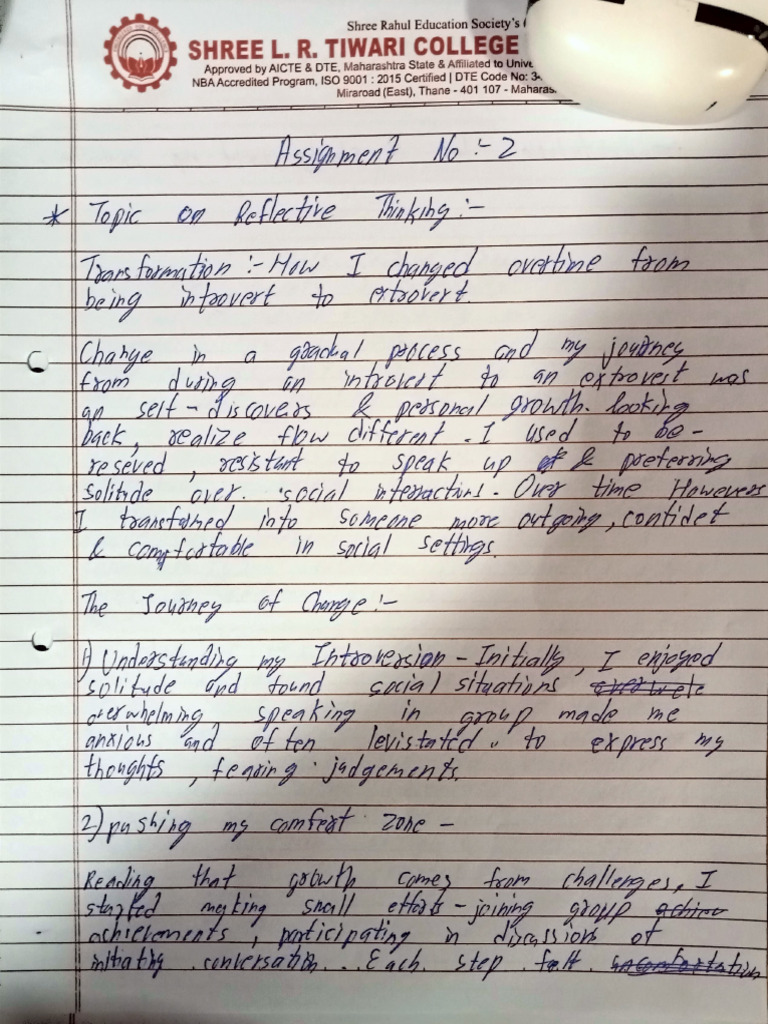 Shree Rahul Education Society's (
SHREE L. R. TIWARI COLLEGE
Approved by AICTE & DTE, Maharashtra State & Affiliated to Unive
NBA Accredited Program, ISO 9001 : 2015 Certified | DTE Code No: 34
Miraroad (East), Thane - 401 107 - Maharas
Assignment No :- 2
* Topic on Reflective Thinking :-
Transformation :- How I changed overtime from
being introvert to extrovert.
Change in a gradual process and my journey
from during an introvert to an extrovert was
an self - discovers & personal growth. looking
back, realize flow different. I used to be -
reseved, resistant to speak up & preferring
solitude over. social interactins. Over time Howevers
I transfomed into someone more outgoing, confidet
& comfortable in social settings.
The Journey of Change :-
1) Understanding my Introversion - Initially, I enjoyed
solitude and found social situations
overwhelming, speaking in group made me
anxious and often levistated. to express my
thoughts, fearing judgements.
2) pushing my comfort zone -
Reading that growth comes from challenges, I
started making small efforts - joining group
achievements, participating in discussions of
initiating conversation... Each step felt